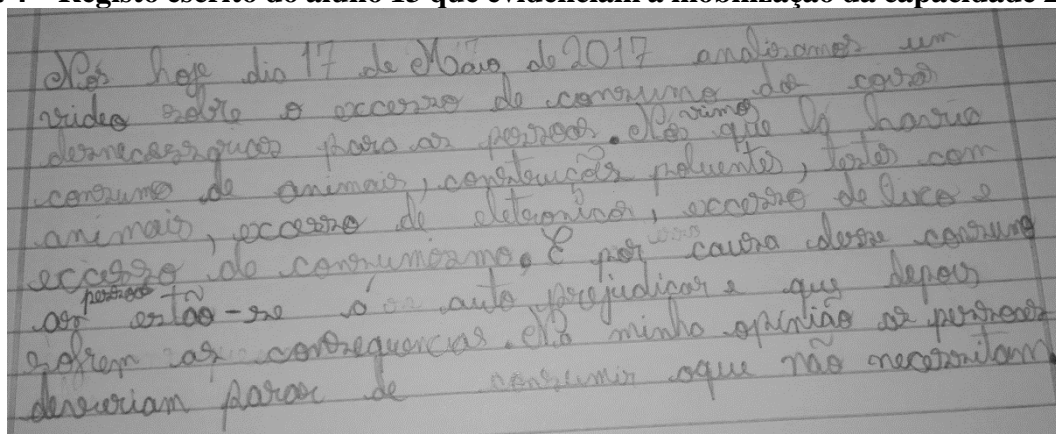 Registo escrito do aluno 13 que evidenciam a mobilização da capacidade
Nós hoje dia 17 de Maio de 2017 analisamos um
video sobre o eccesso de consumo das coisas
desnecessárias para as pessoas. Nós vimos que lá havia
consumo de animais, construções poluentes, testes com
animais, eccesso de eletronicos, eccesso de lixo e
eccesso do consumismo. E por causa desse consumo
as pessoas estão-se a auto prejudicar e que depois
sofrem as consequencias. Na minha opinião as pessoas
deveriam parar de consumir oque não necessitam